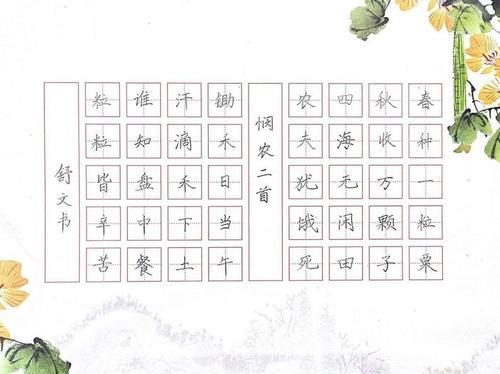 春种一粒粟
秋收万颗子
四海无闲田
农夫犹饿死
悯农二首
锄禾日当午
汗滴禾下土
谁知盘中餐
粒粒皆辛苦
舒文书